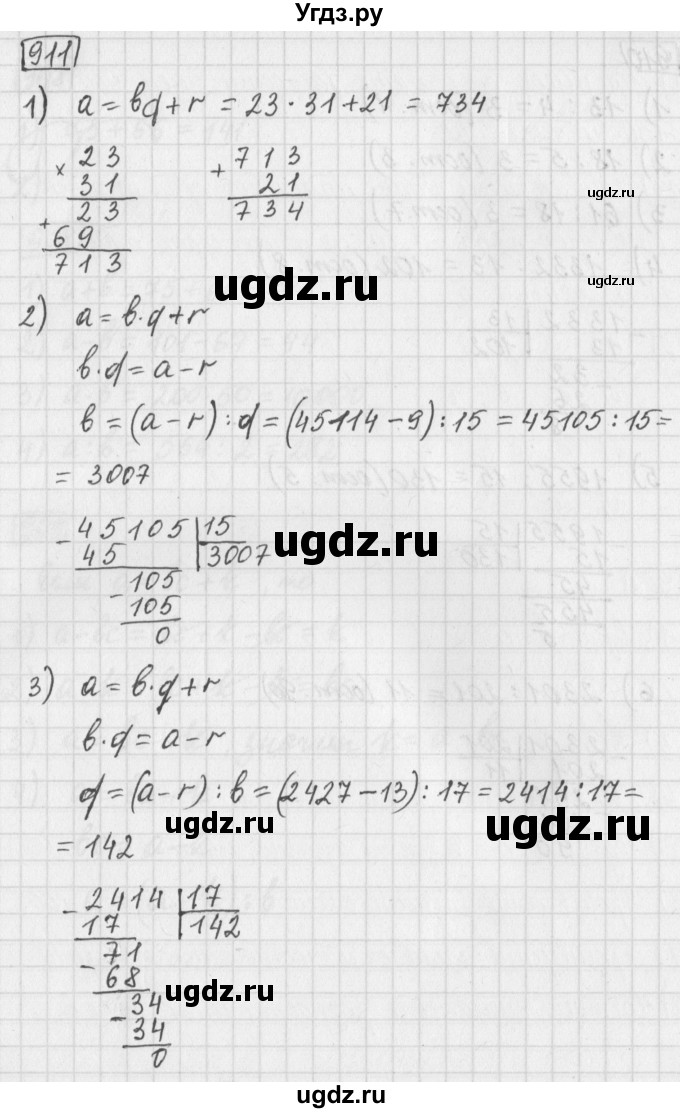 Угдз.ру
911
1) a = bq + r = 23 · 31 + 21 = 734
× 23
31
+ 23
69
713
+ 713
21
734
ugdz.ru
ugdz.ru
ugdz.ru
2) a = b·q + r
b·q = a − r
b = (a − r) : q = (45114 − 9) : 15 = 45105 : 15 =
= 3007
− 45105 | 15
45 | 3007
− 105
105
0
ugdz.ru
3) a = b·q + r
b·q = a − r
q = (a − r) : b = (2427 − 13) : 17 = 2414 : 17 =
= 142
ugdz.ru
ugdz.ru
− 2414 | 17
17 | 142
− 71
68
− 34
34
0
ugdz.ru
ugdz.ru